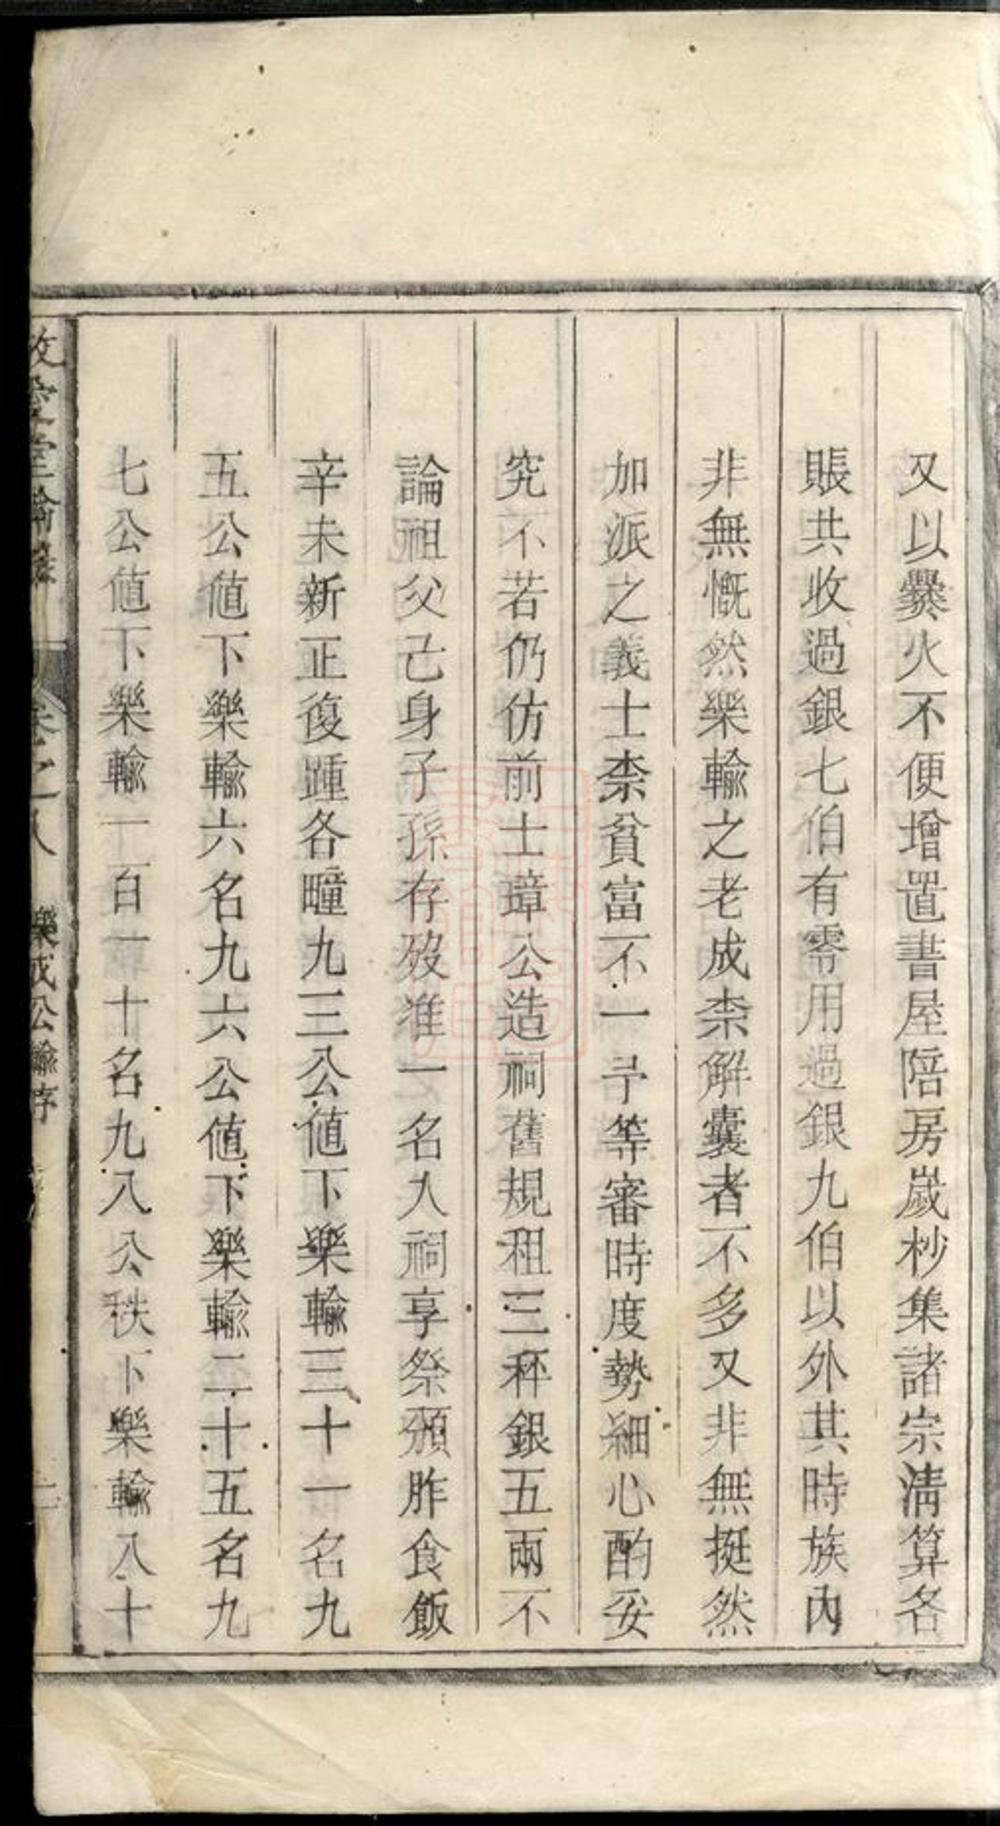 又以爨火不便增置書屋陪房歲杪集諸宗清算各
賬共收過銀七伯有零用過銀九伯以外其時族內
非無慨然樂輸之老成柰解囊者不多又非無挺然
加派之義士柰貧富不一予等審時度勢細心酌妥
究不若仍仿前士璋公造祠舊規租三秤銀五兩不
論祖父己身子孫存歿准一名入祠享祭頒胙食飯
辛未新正復踵各疃九三公値下樂輸三十一名九
五公値下樂輸六名九六公値下樂輸二十五名九
七公値下樂輸一百一十名九八公秩下樂輸八十
卷之八
樂成公輸序